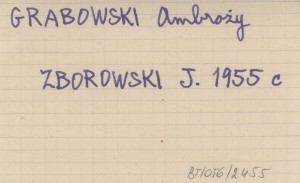 GRABOWSKI Ambroży
ZBOROWSKI J. 1955 c
BJ/OTG/2455